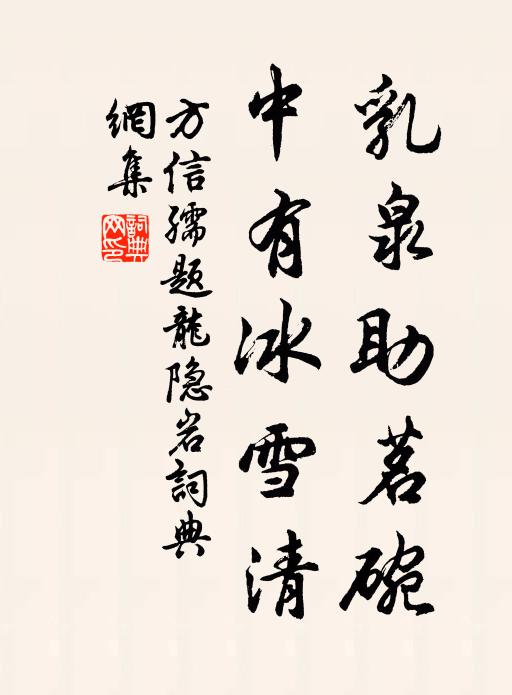 乳泉助茗碗
中有冰雪清
方信孺题龍隐岩詞典
網集
詞典
网印